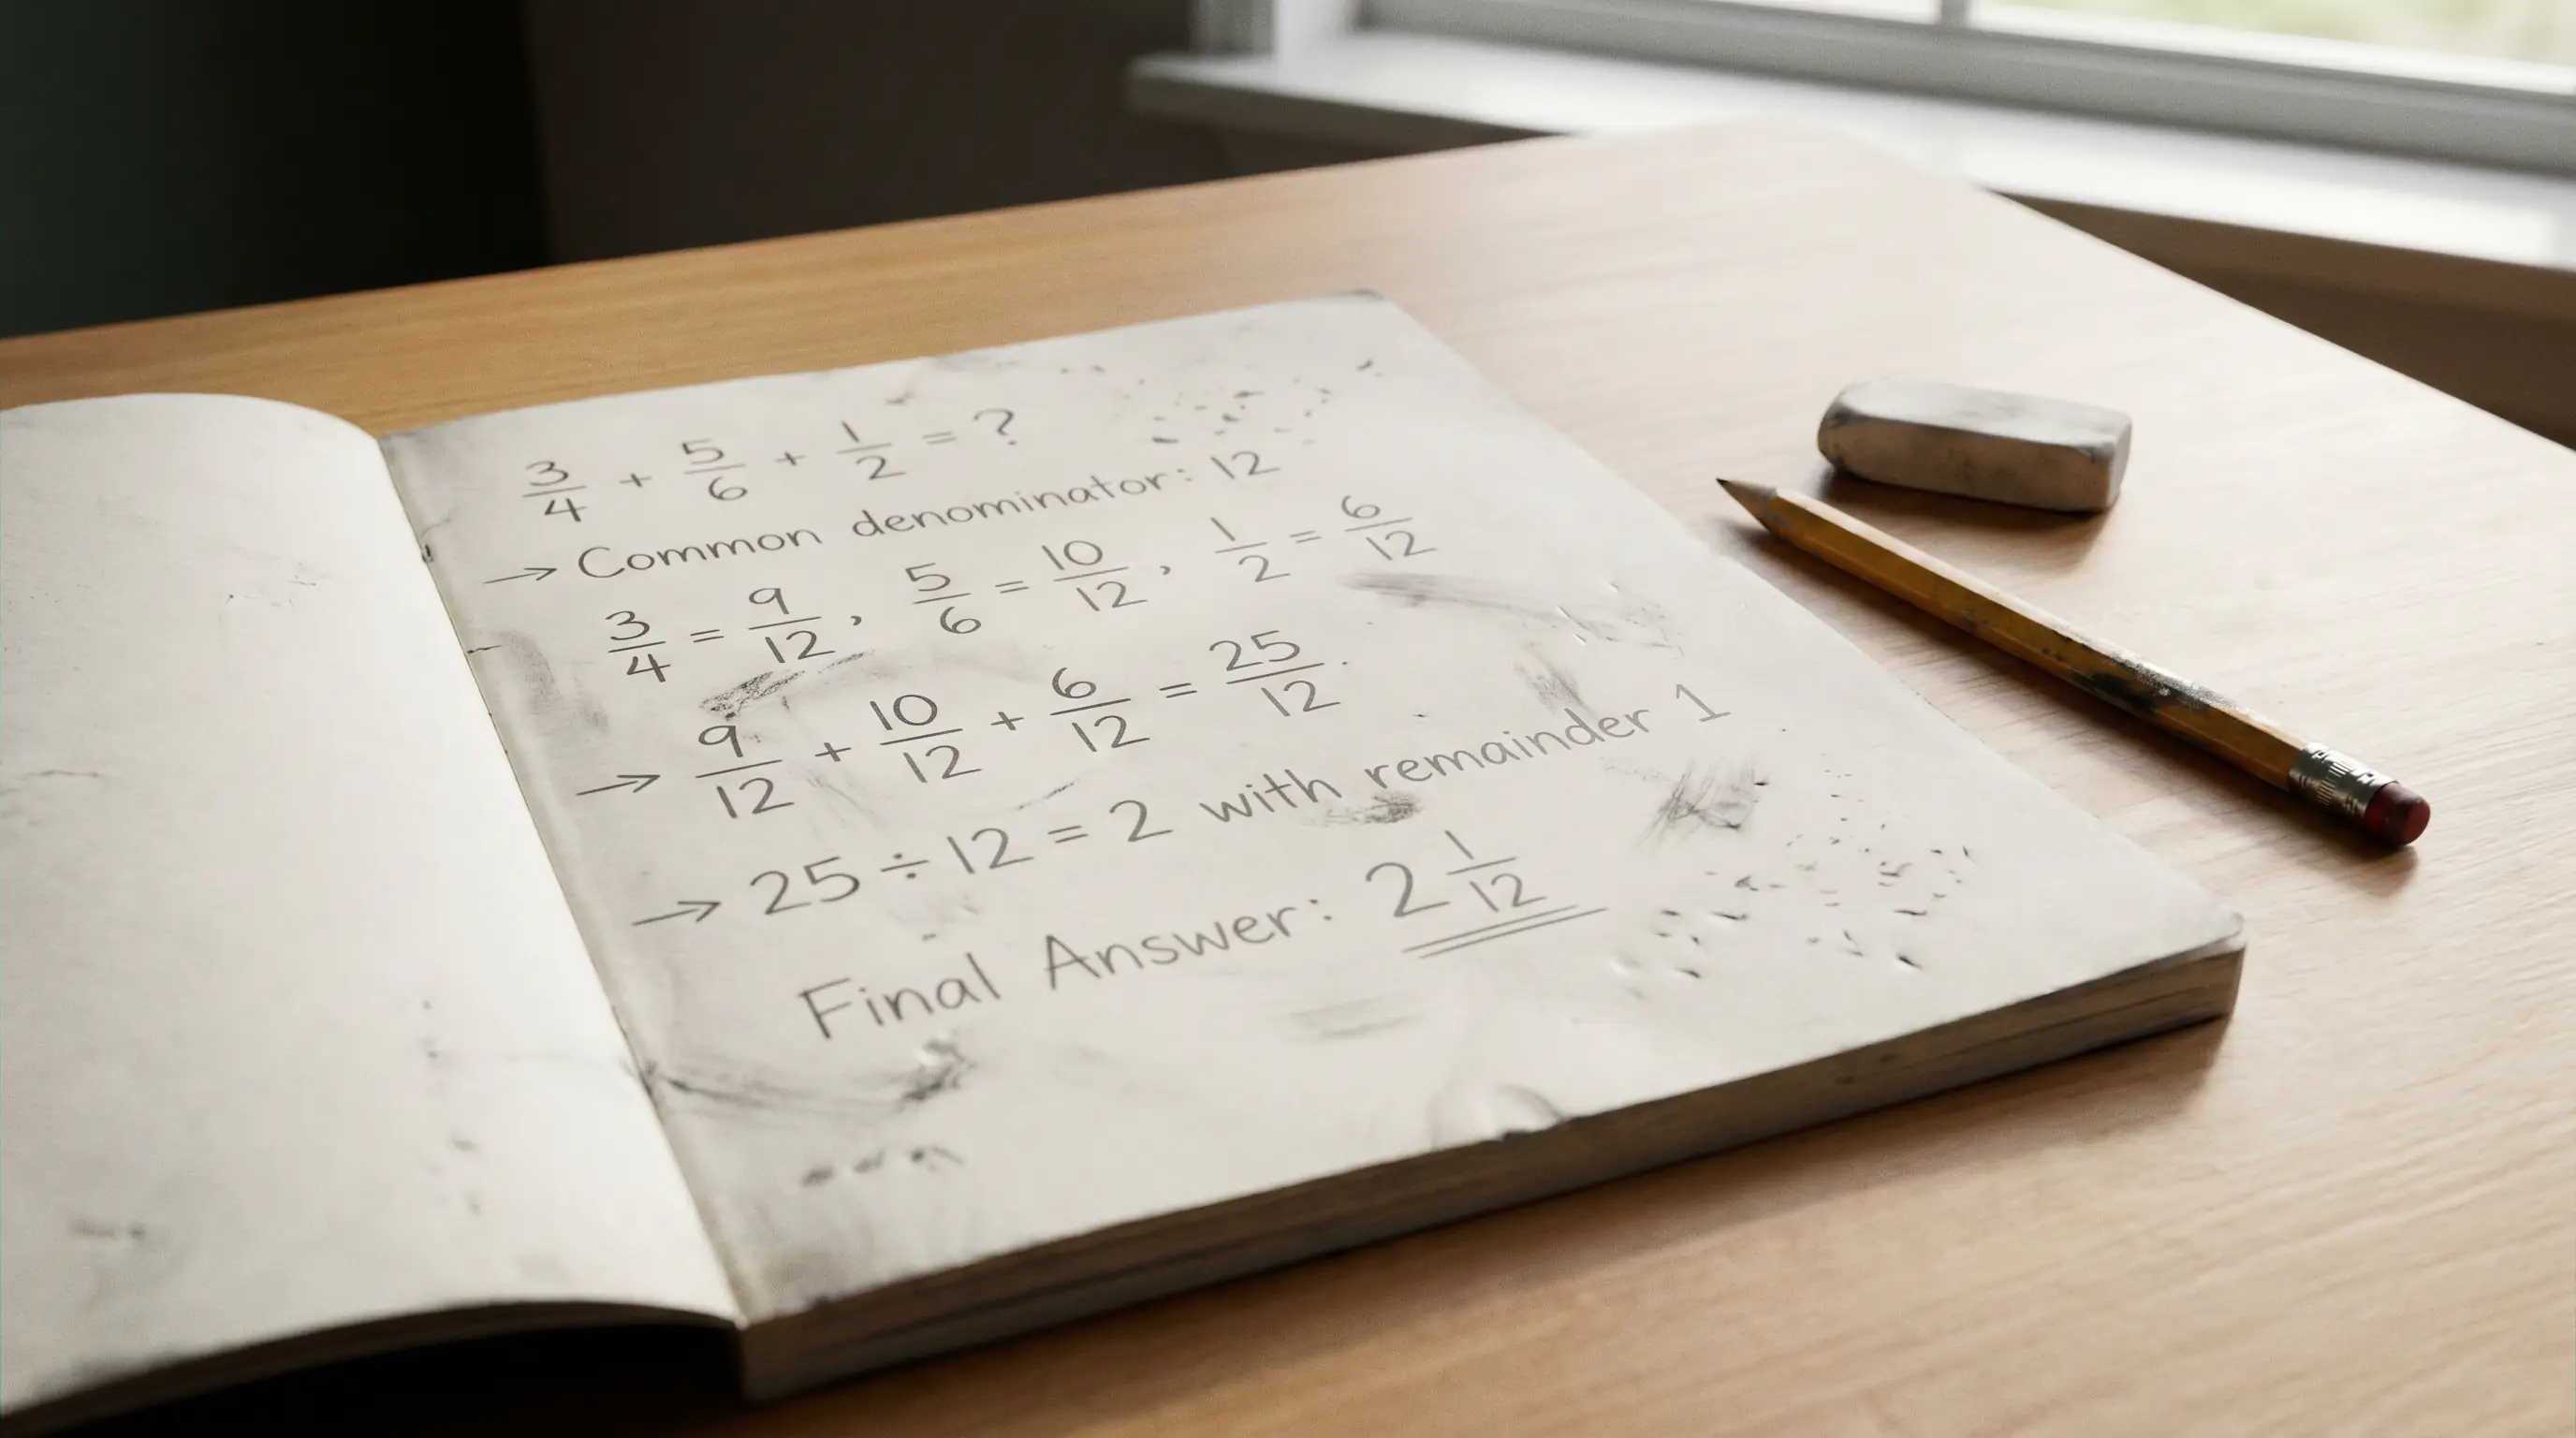 3/4 + 5/6 + 1/2 = ?
→ Common denominator: 12
3/4 = 9/12, 5/6 = 10/12, 1/2 = 6/12
→ 9/12 + 10/12 + 6/12 = 25/12
→ 25 ÷ 12 = 2 with remainder 1
Final Answer: 2 1/12